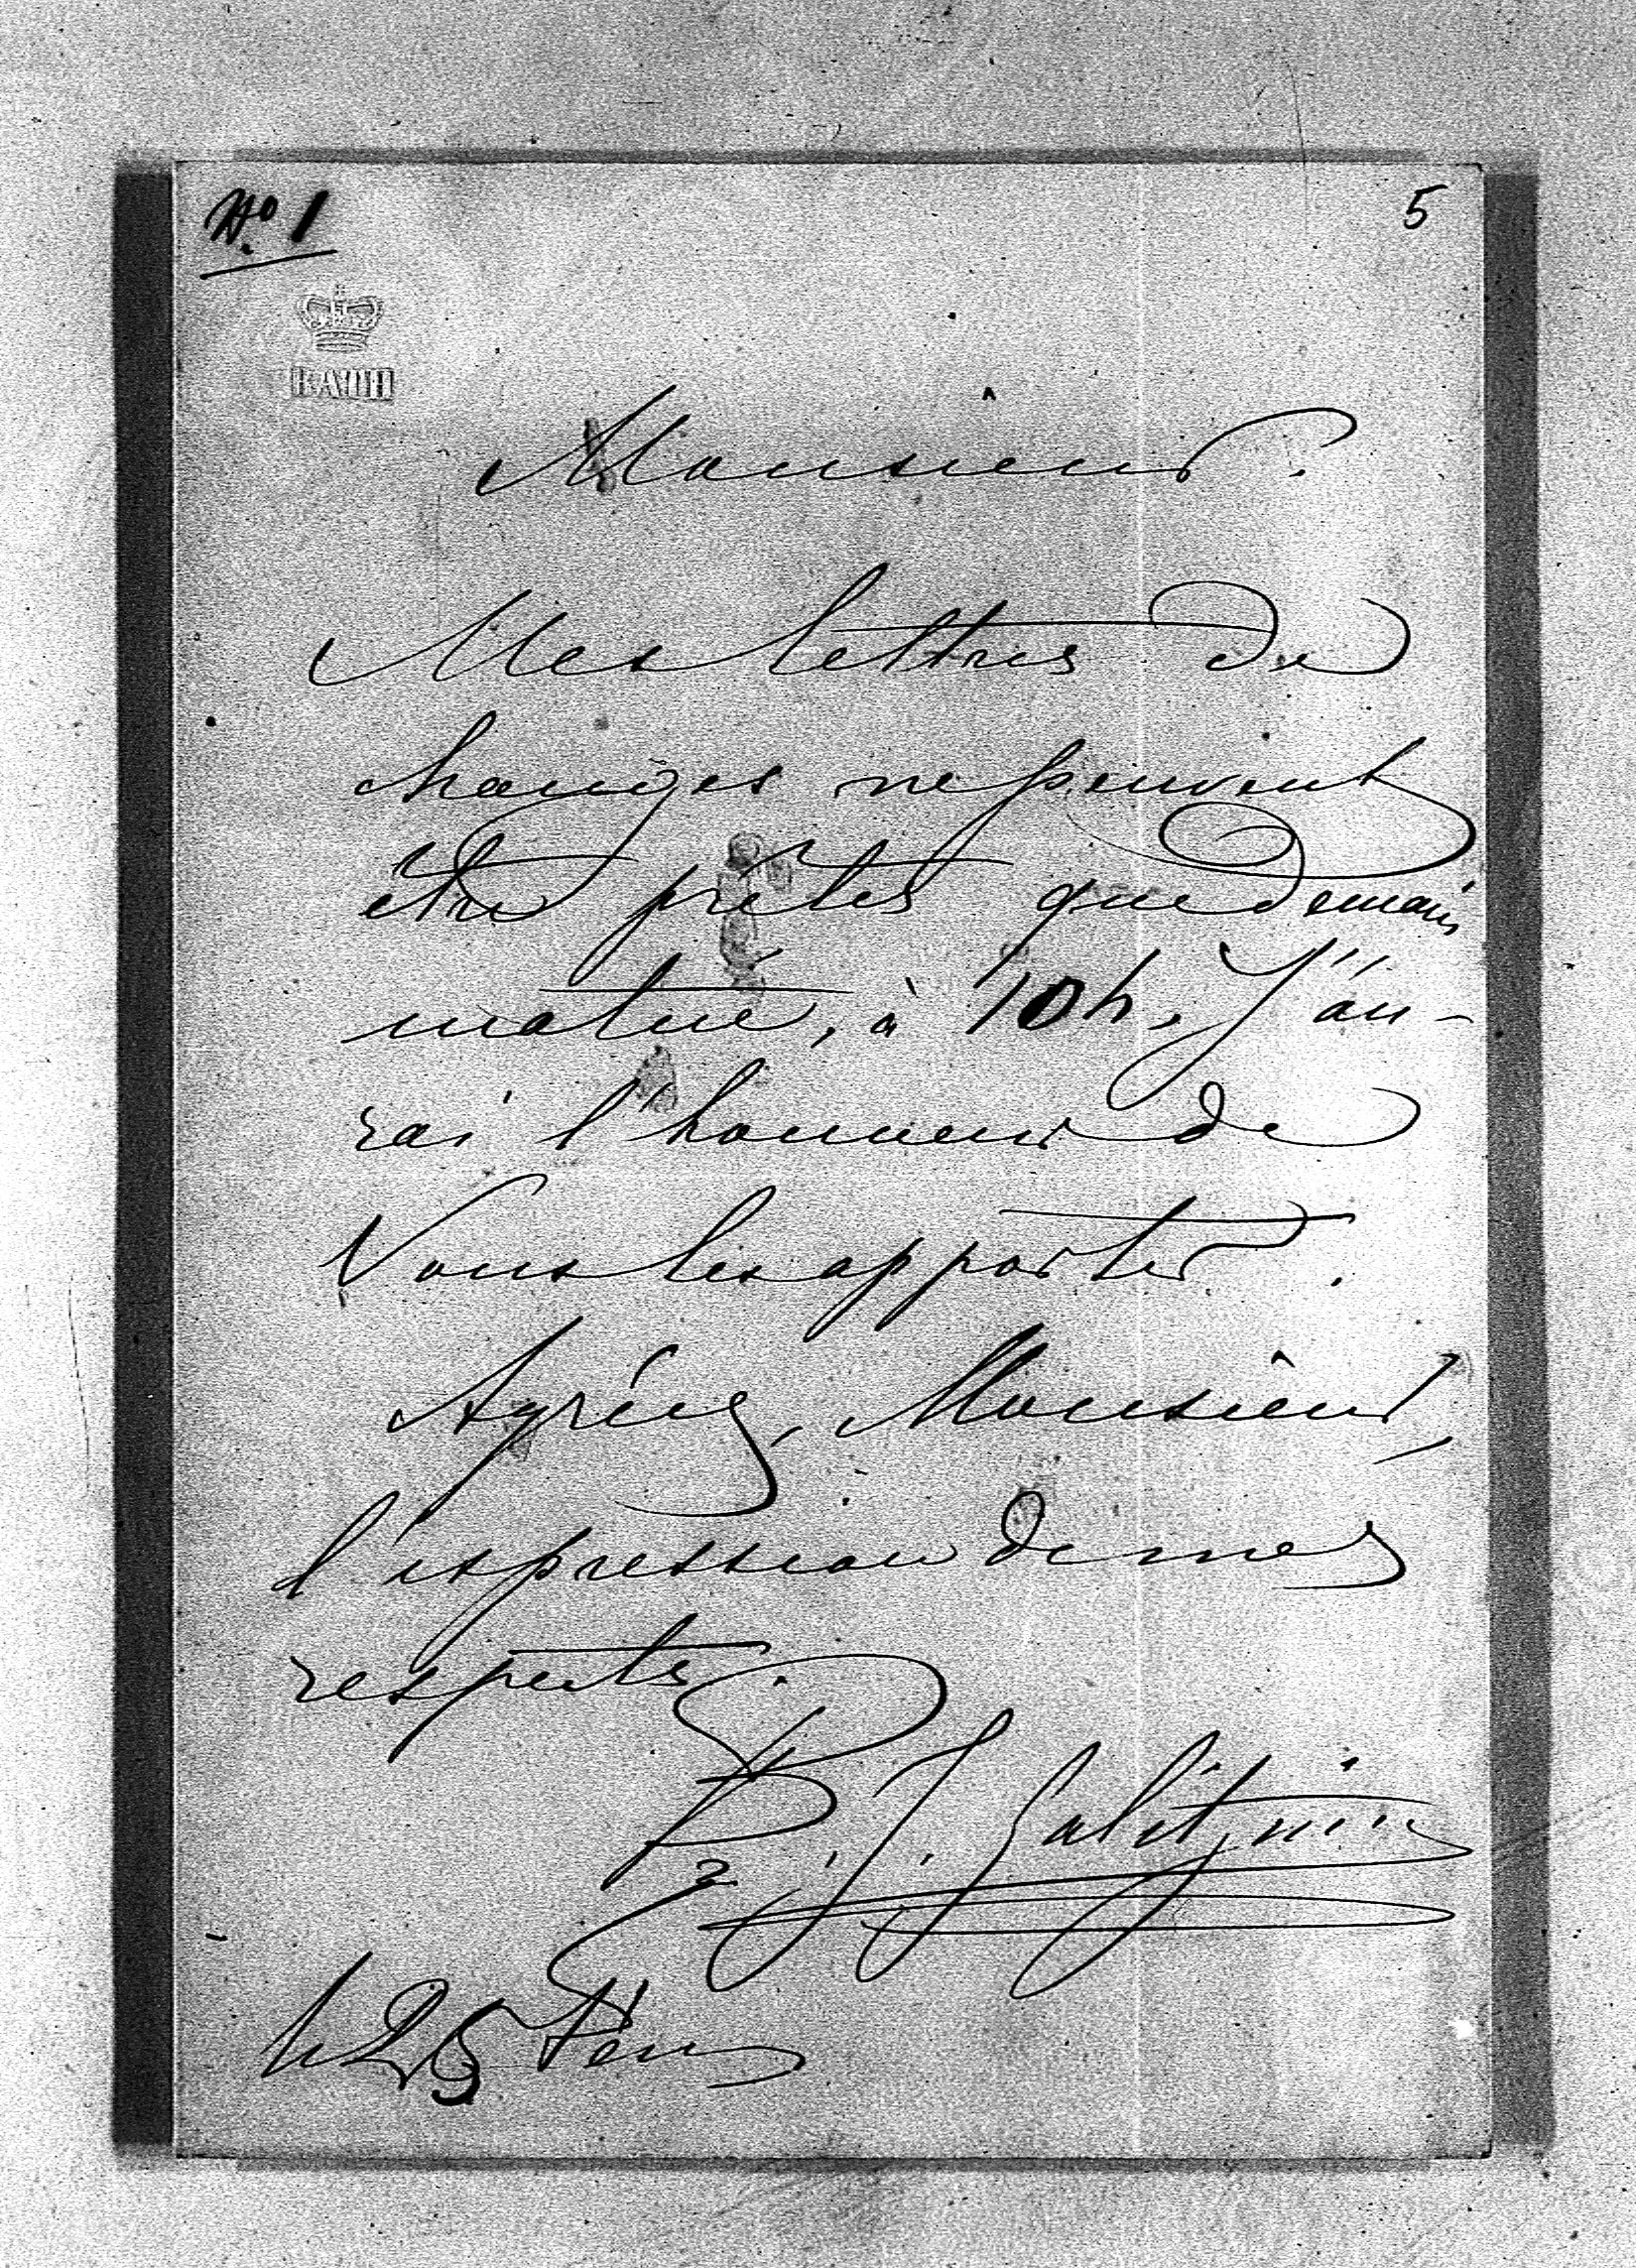 No 1
5
BATH
Monsieur.
Mes lettres de
changes ne peuvent
être prêtes que demain
matin, à 10 h. J'au-
rai l'honneur de
Vous les apporter.
Agréez, Monsieur,
l'expression de mes
respects.
J. Galitzin
le 25